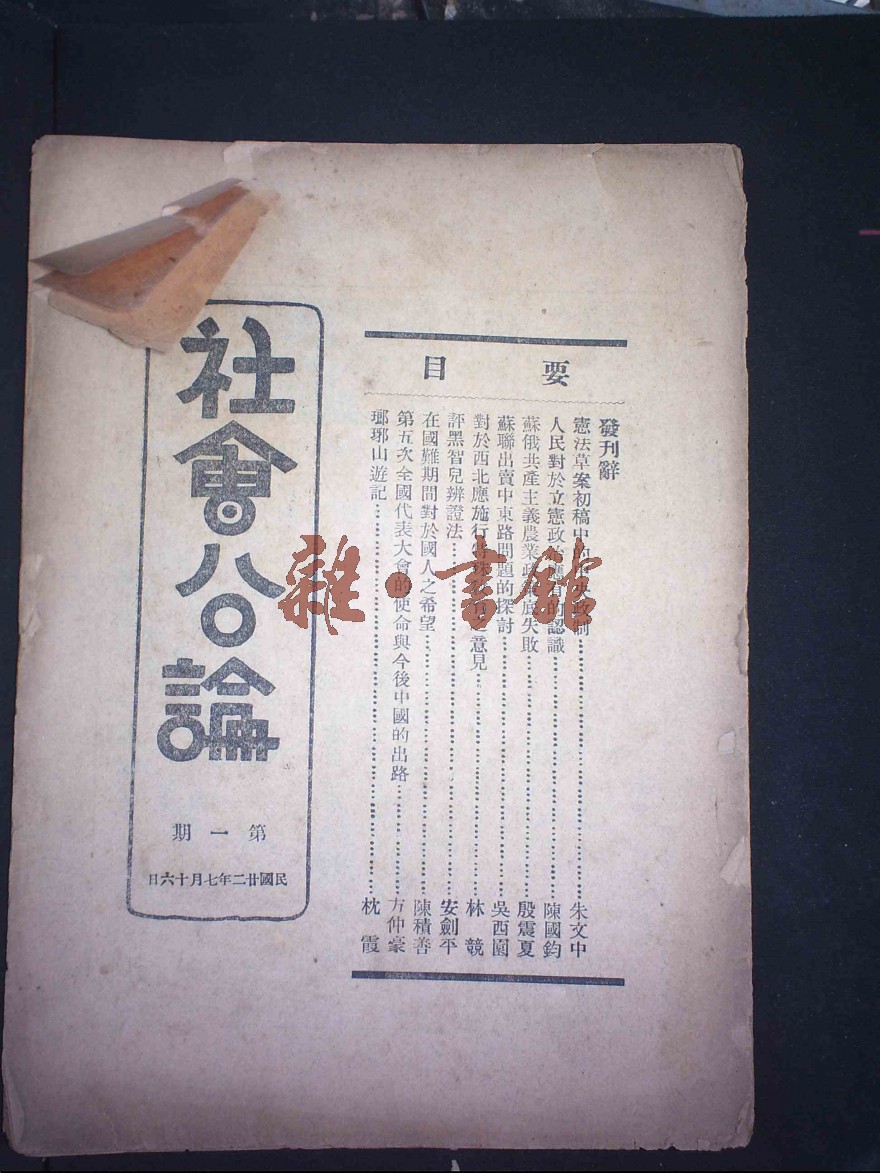 要目
發刊辭
憲法草案初稿中的中央政制……朱文中
人民對於立憲政治應有的認識……陳國鈞
蘇俄共產主義農業政策底失敗……殷震夏
蘇聯出賣中東路問題的探討……吳西園
對於西北應施行特殊意見……林競
評黑智兒辨證法……安劍平
在國難期間對於國人之希望……陳積善
第五次全國代表大會的使命與今後中國的出路……方仲豪
瑯琊山遊記……枕霞
社會公論
第一期
民國廿二年七月十六日
雜·書館